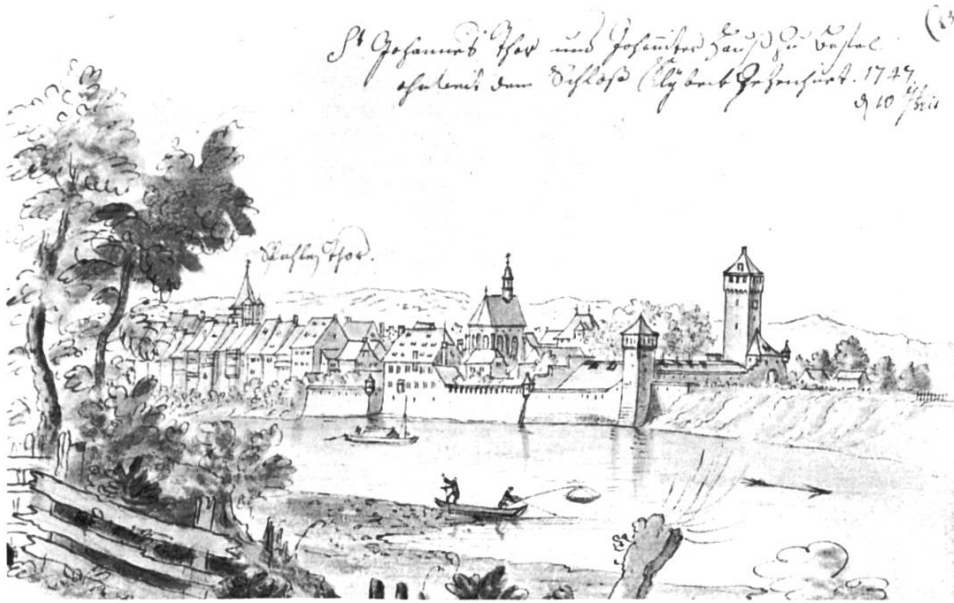 St Johannes Thor und Johanniter Hauß zu Bassel
ohnweit dem Schloß Clÿbeck Gezeichnet. 1747
d 10
Spahlen Thor.